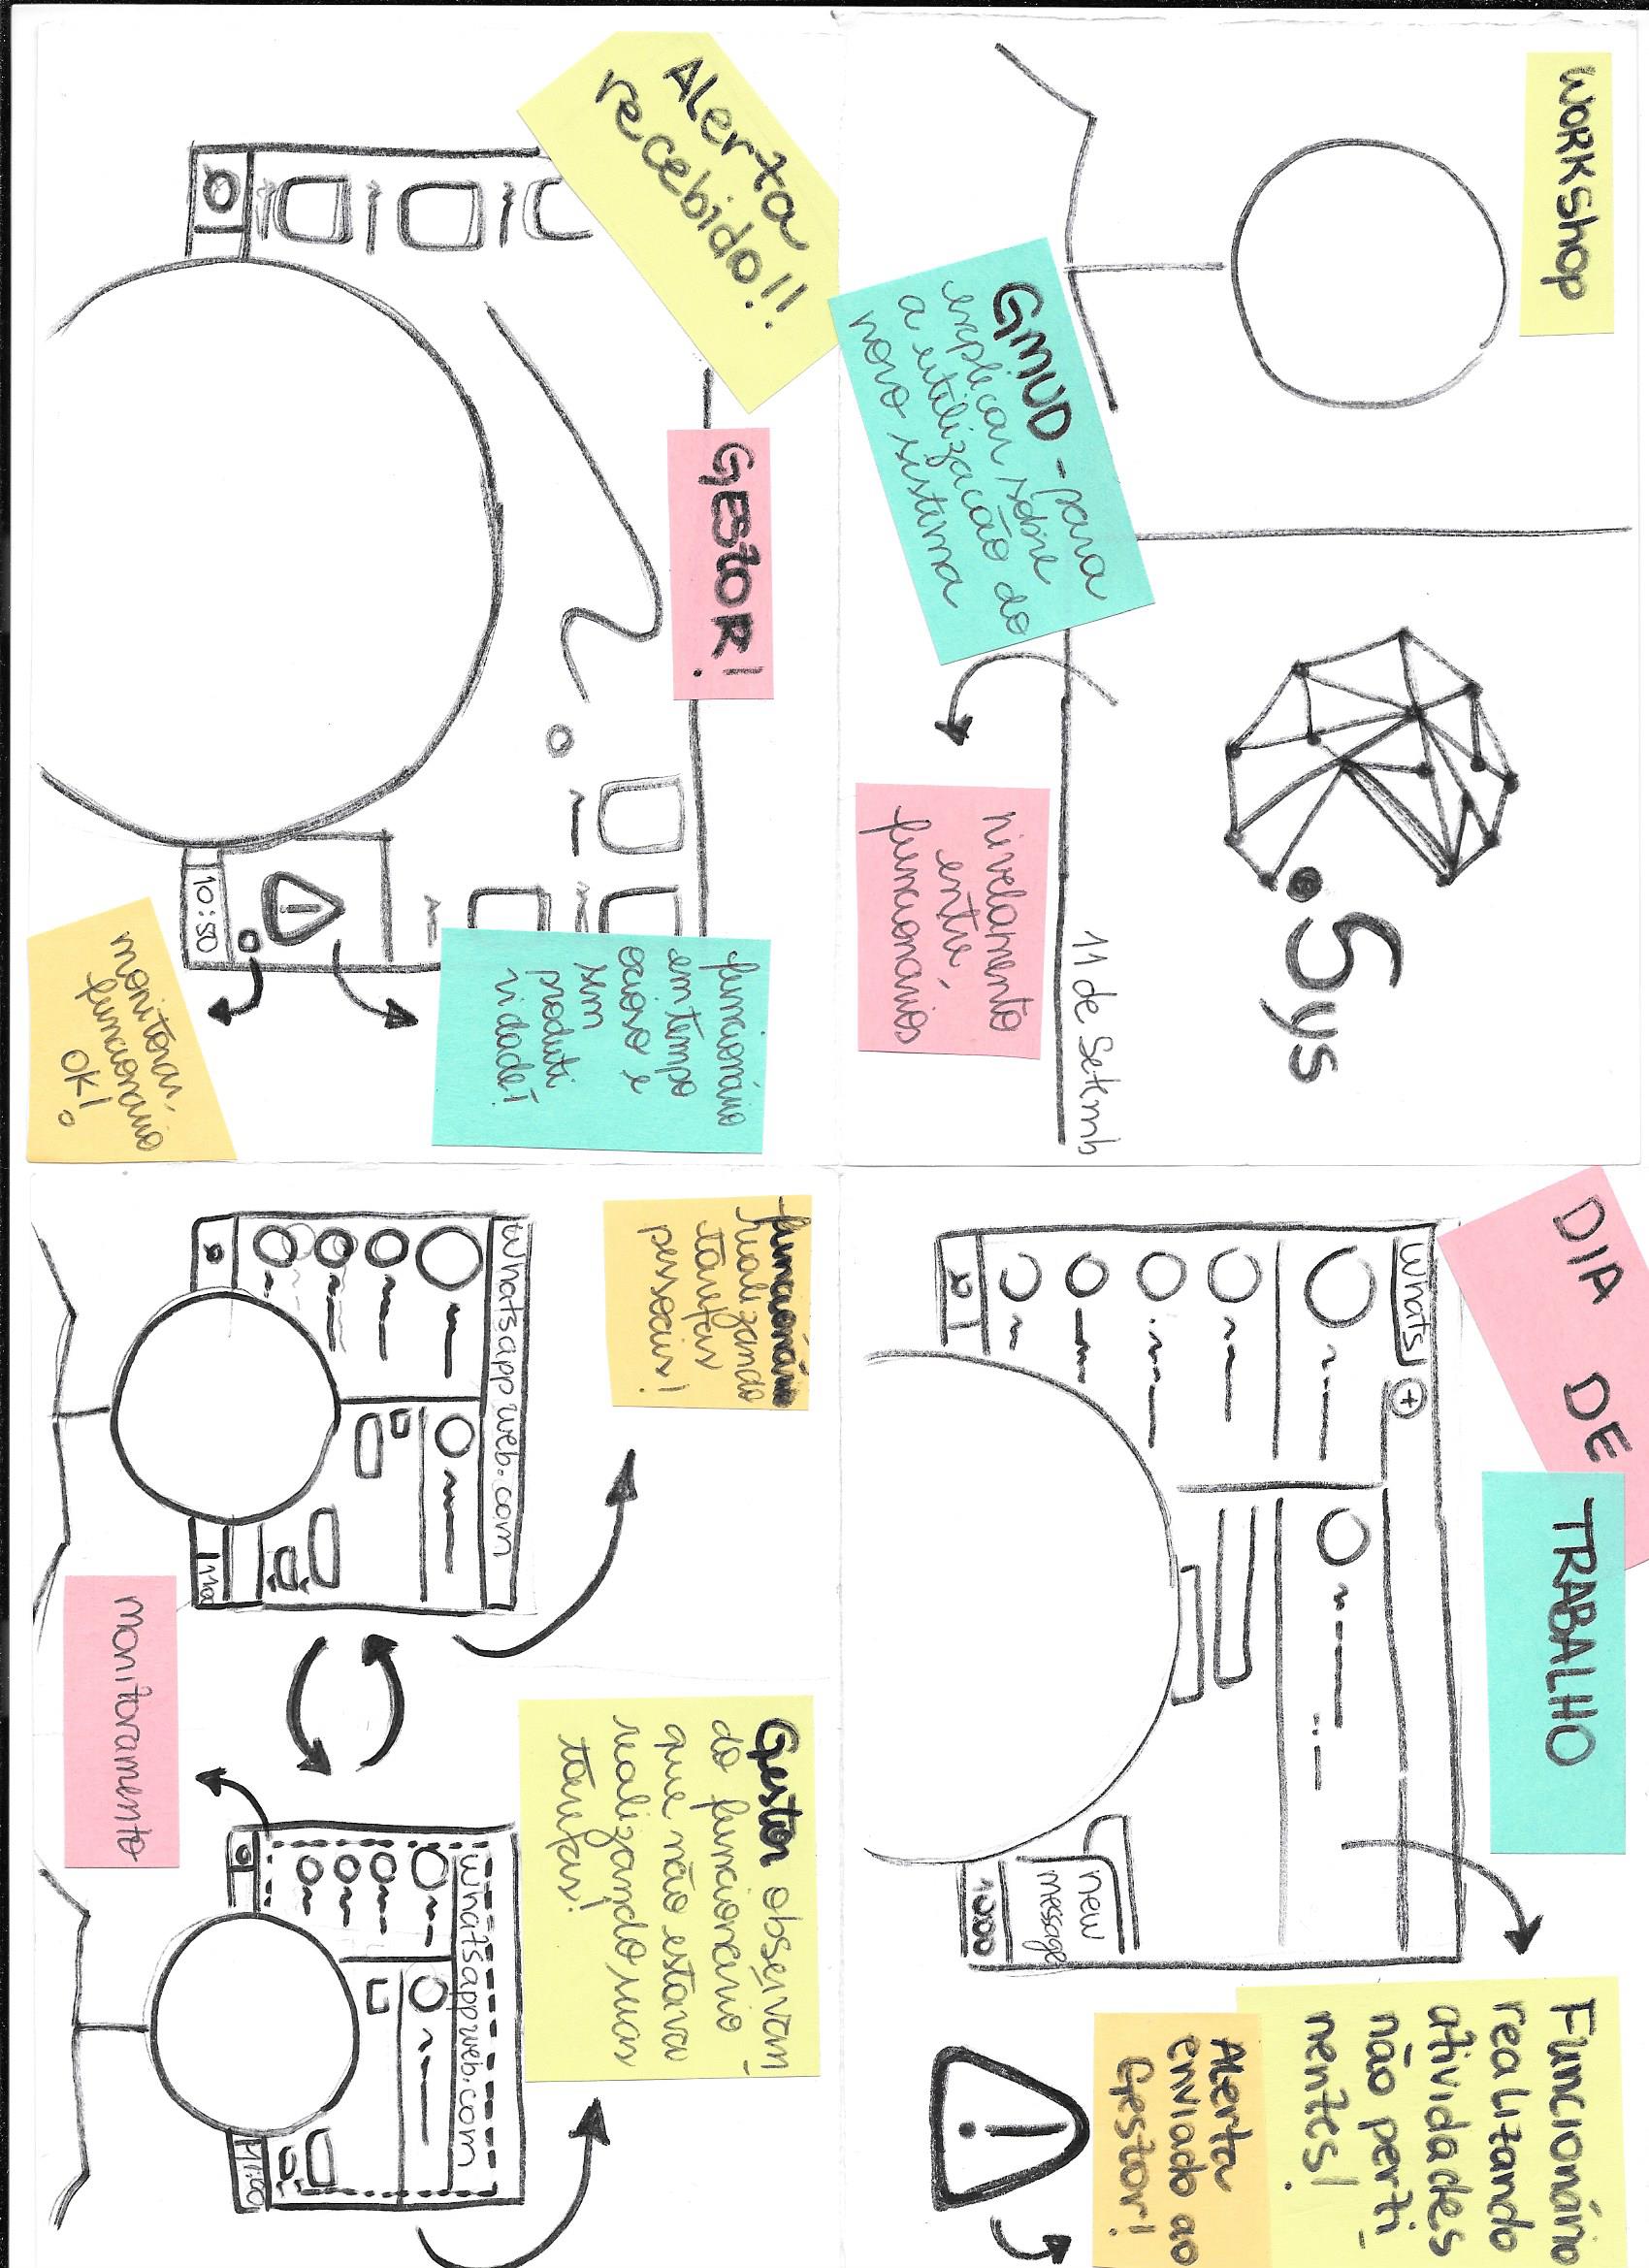 WORKShop
.Sys
11 de Setemb
GMUD - para
explicar sobre
a utilização do
novo sistema
nivelamento
entre
funcionários
DIA DE
TRABALHO
Funcionário
realizando
atividades
não perti_
nentes!
Alerta
enviado ao
Gestor!
Whats
new
message
10:00
Alerta
recebido!!
GESTOR!
funcionário
em tempo
ocioso e
sem
produti
vidade!
10:50
monitorar
funcionário
OK!
funcionário
realizando
tarefas
pessoais!
Gestor observan_
do funcionário
que não estava
realizando suas
tarefas!
Whatsappweb.com
11:00
Whatsappweb.com
11:00
monitoramento